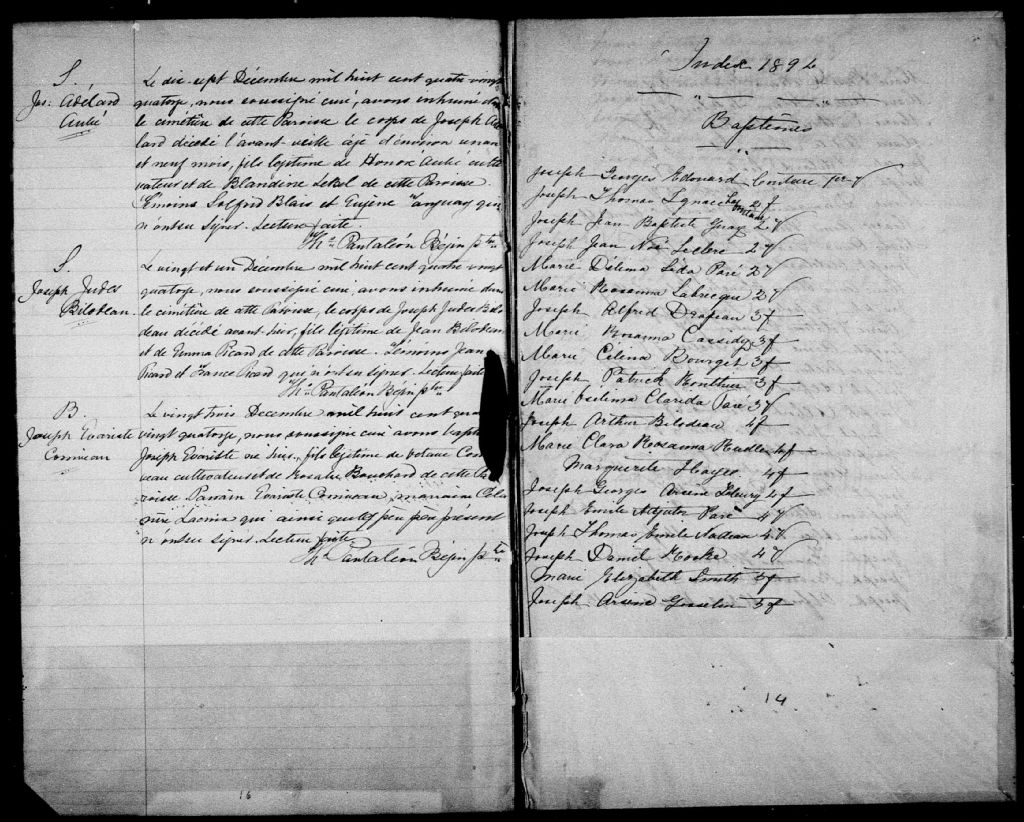 S.
Jos: Adélard
Aubé
Le dix-sept Décembre mil huit cent quatre vingt
quatorze, nous soussigné curé, avons inhumé dans
le cimetière de cette Paroisse le corps de Joseph Adé
lard décédé l'avant-veille âgé d'environ un an
et neuf mois, fils légitime de Honoré Aubé culti
vateur et de Blandine Lebel de cette Paroisse.
Témoins Wilfrid Blais et Eugène Tanguay qui
n'ont su signer. Lecture faite.
Ths Pantaléon Bégin ptre
S.
Joseph Judes
Bilodeau
Le vingt et un Décembre mil huit cent quatre vingt
quatorze, nous soussigné curé, avons inhumé dans
le cimetière de cette Paroisse, le corps de Joseph Judes Bilo
deau décédé avant-hier, fils légitime de Jean Bilodeau
et de Emma Picard de cette Paroisse. Témoins Jean
Picard et France Picard qui n'ont su signer. Lecture faite
Ths Pantaléon Bégin ptre
B.
Joseph Evariste
Comineau
Le vingt trois Decembre mil huit cent quatre
vingt quatorze, nous soussigné curé avons baptisé
Joseph Evariste né hier, fils légitime de Comi
neau cultivateur et de Rosalie Bouchard de cette Pa
roisse Parrain Evariste Comineau, marraine
Lacroix qui ainsi que le père présent
n'ont su signer. Lecture faite.
Ths Pantaléon Bégin ptre
16
Index 1894
Baptêmes
Joseph Georges Edouard Couture 1er f
Joseph Thomas Ignace 2 f
Joseph Jean Baptiste Guay 2 f
Joseph Jean Noé Leclerc 2 f
Marie Délima Léda Paré 2 f
Marie Rosanna Labrecque 2 f
Joseph Alfred Drapeau 3 f
Marie Rosanna Cassidy 3 f
Marie Célina Bourget 3 f
Joseph Patrick Routhier 3 f
Marie Exilima Clarida Paré 3 f
Joseph Arthur Bilodeau 4 f
Marie Clara Rosanna Nadeau 4 f
Marguerite Hayes 4 f
Joseph Georges Arsène Fleury 4 f
Joseph Emile Adjutor Paré 4 f
Joseph Thomas Emile Nadeau 4 f
Joseph Daniel Rooke 4 f
Marie Elizabeth Smith 5 f
Joseph Arsène Gosselin 5 f
14